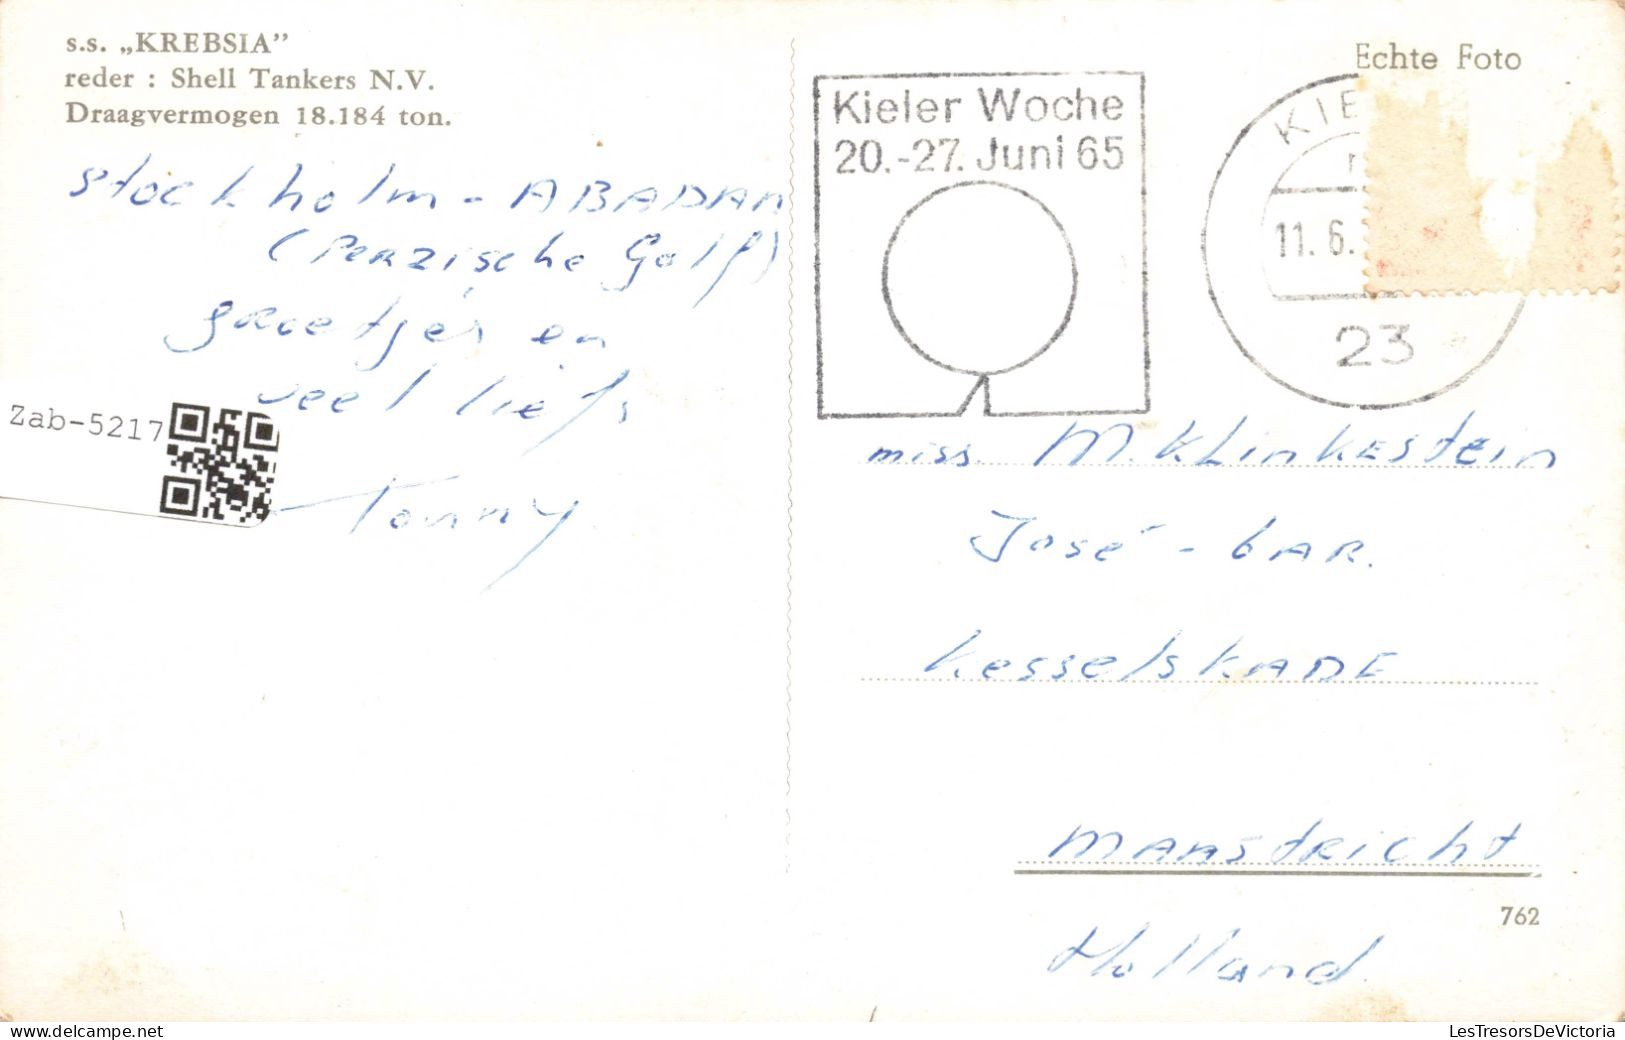 s.s. „KREBSIA”
reder : Shell Tankers N.V.
Draagvermogen 18.184 ton.
Stockholm - ABADAN
(Perzische Golf)
groetjes en
veel liefs
Tonny
Zab-5217
Echte Foto
Kieler Woche
20.-27. Juni 65
KIE
11.6.
23
miss. M. Klinkestein
José - bar.
KesselsKADE
MAAstricht
Holland.
762
LesTresorsDeVictoria